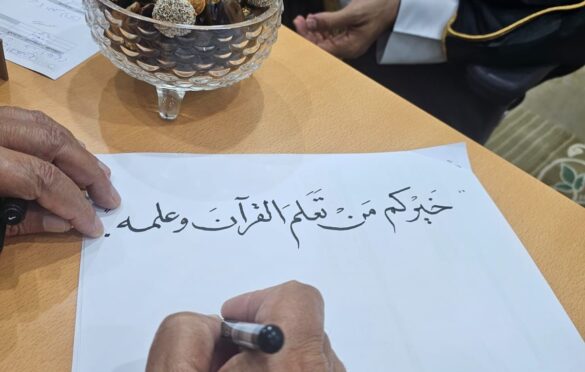 "خَيْركم مَنْ تَعَلمَ القرآنَ وعلمه".